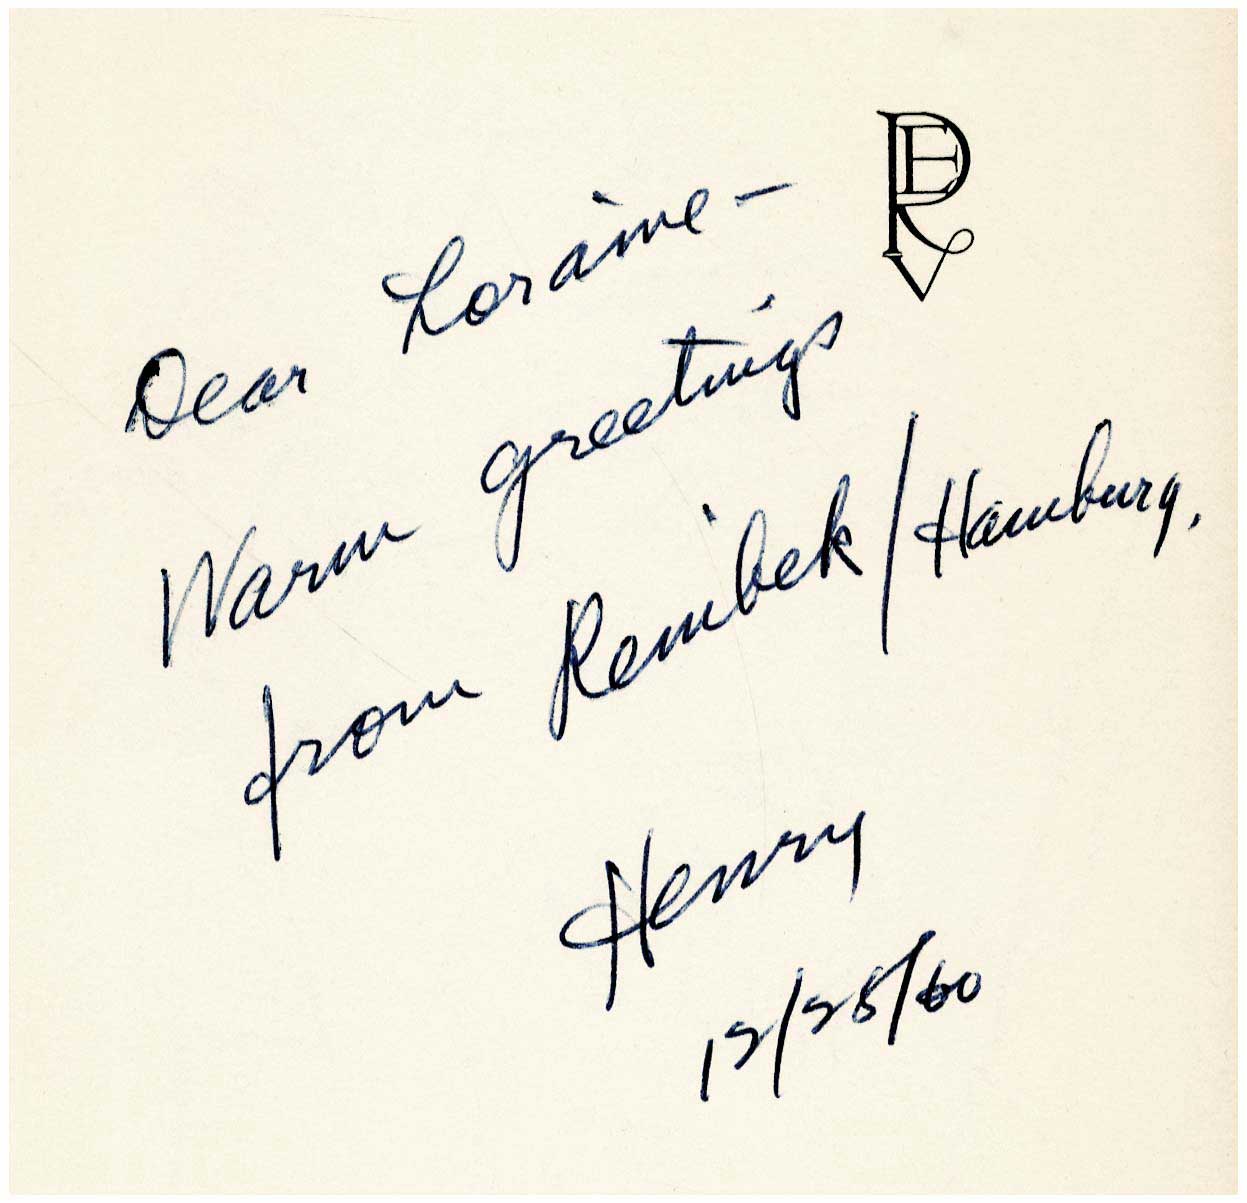 Dear Loraine –
Warm greetings
from Reinbek/Hamburg.
Henry
12/28/60